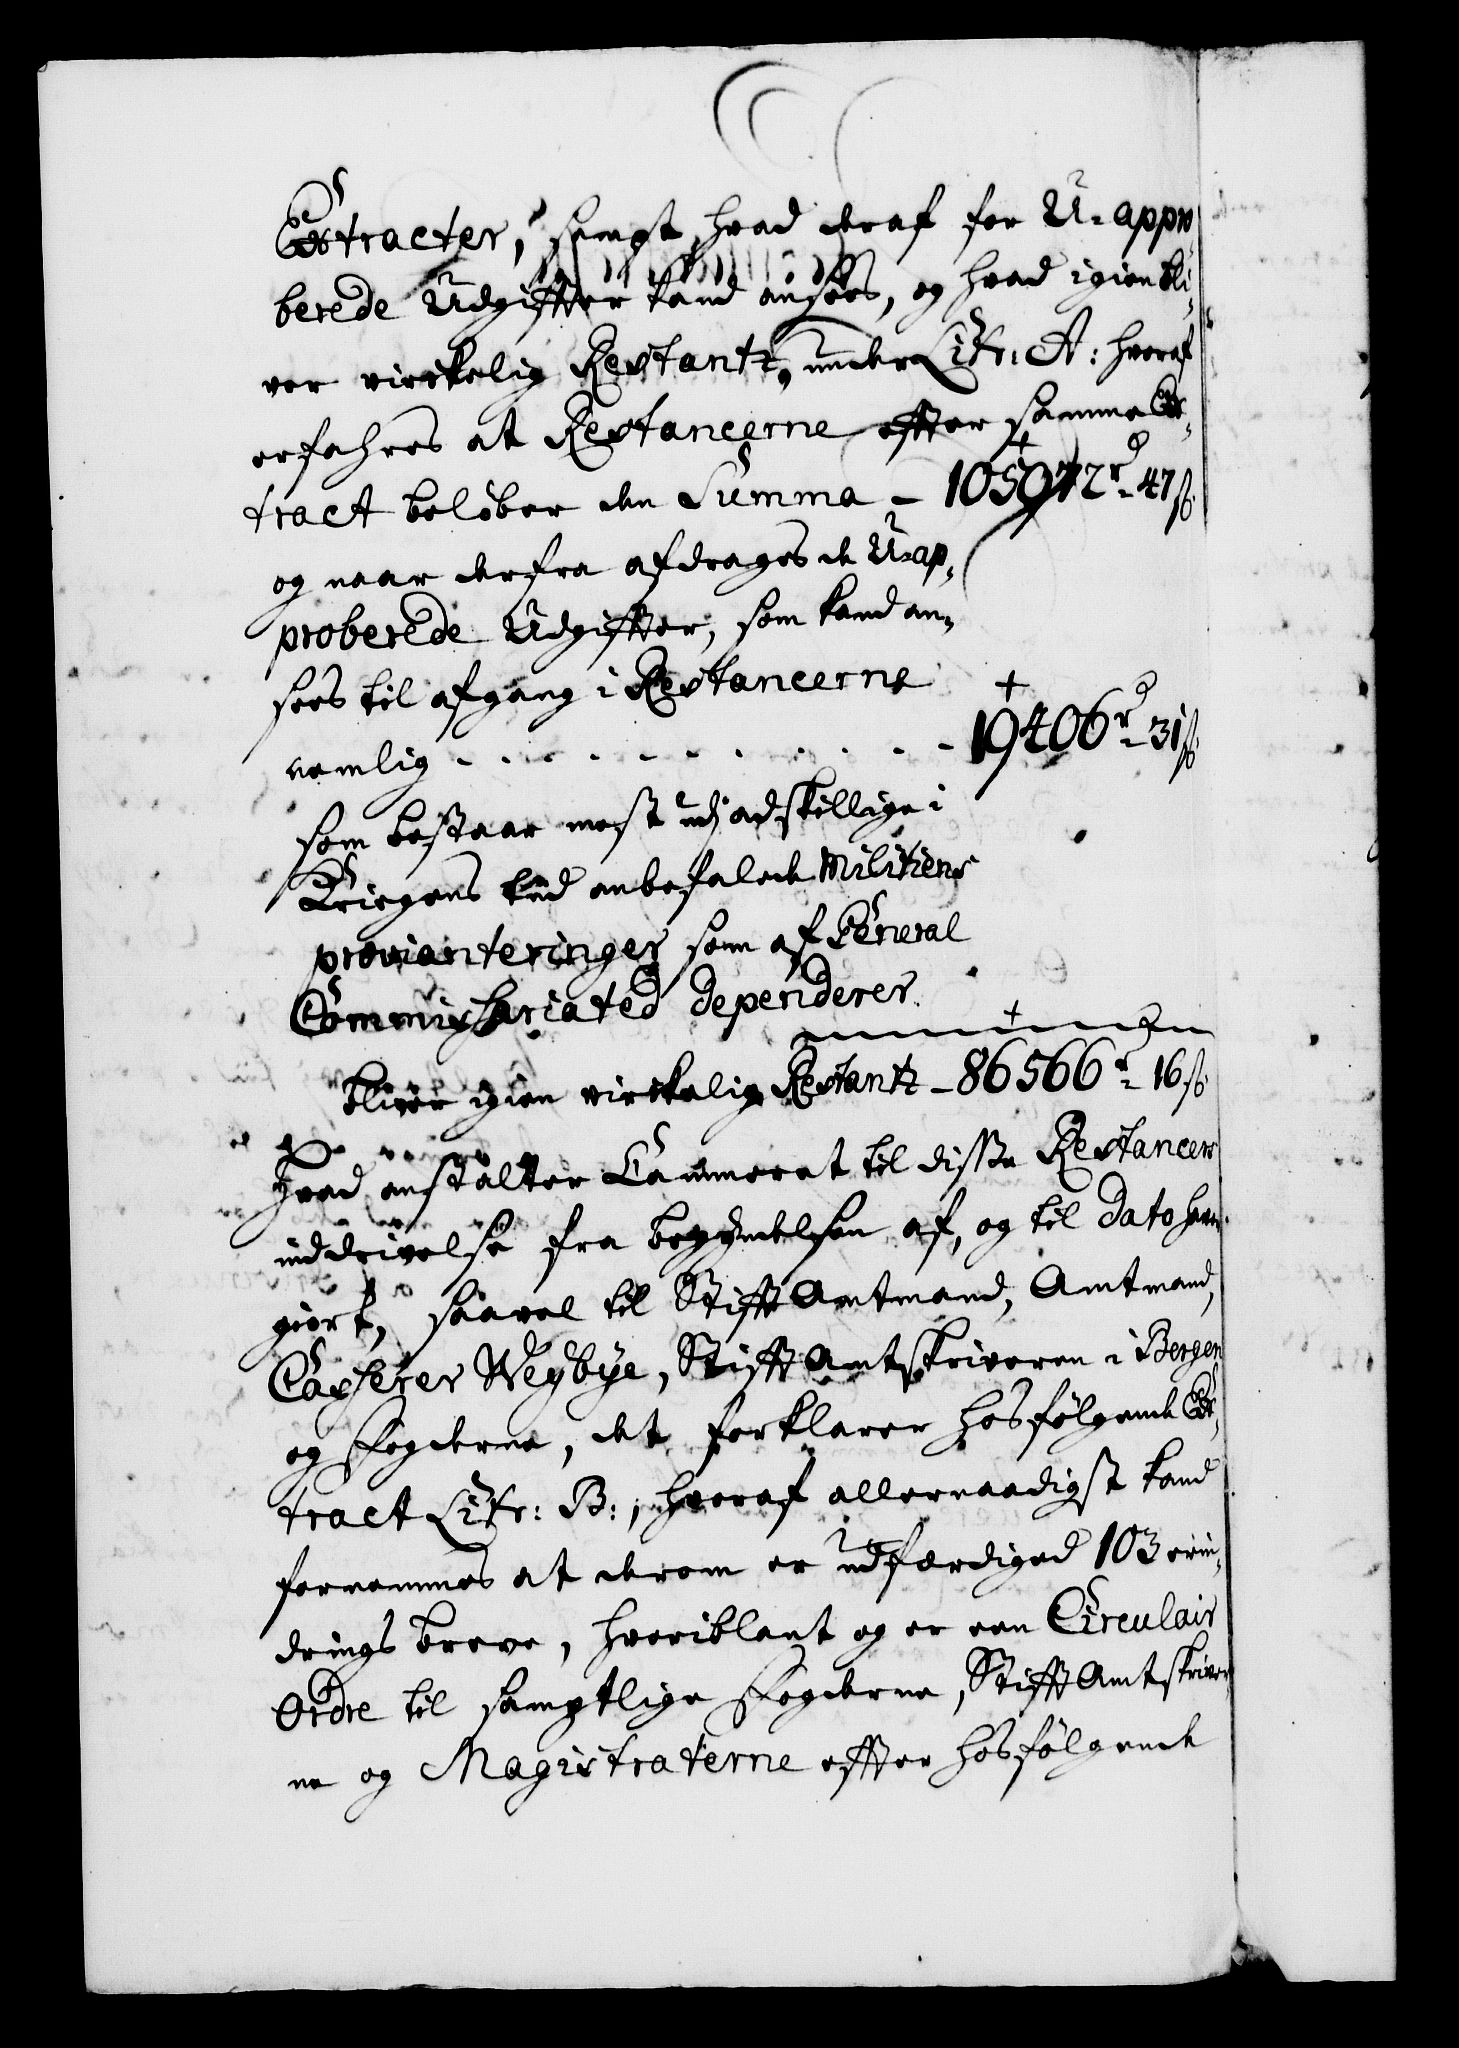 Extracter, sampt hvad deraf for U-appro
berede Udgiffter kand ansees, og hvad igien bli-
ver virkelig Restantz, under Litr: A: hvoraf
erfahres at Restancerne effter samme Ex-
tract beløber den Summa - 105972 rd - 47 ß
og naar derfra afdrages de U-ap-
proberede Udgiffter, som kand an-
sees til afgang i Restancerne
nemlig - - - - - - - - 19406 rd - 31 ß
som bestaar mest udj adskillige i
Kriegens tid anbefalede Militiens
provianteringer som af General
Commissariated dependerer.
bliver igien virkelig Restantz - 86566 rd - 16 ß
Hvad anstalter Cammeret til disse Restancers
inddrivelse fra begyndelsen af, og til dato haver
giort, saavel til Stifft Amtmand, Amtmand,
Casserer Weybye, Stifft Amtskriveren i Bergen
og Fogderne, det forklarer hosfølgende Ex-
tract Litr: B:, hvoraf allernaadigst kand
fornemmes at derom er udferdiged 103 erin-
drings breve, hvoriblant og er een Circulair
Ordre til samptlige Fogderne, Stifft Amtskriver-
ne og Magistraterne effter hosfølgende